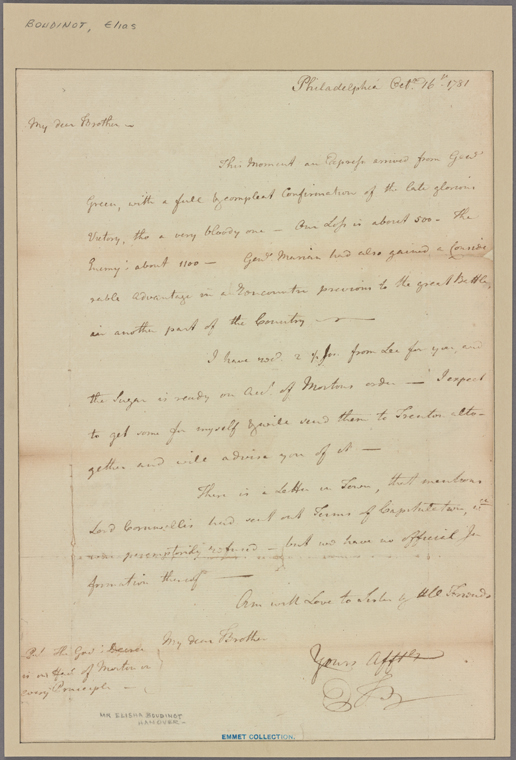 BOUDINOT, Elias
Philadelphia Octr. 16th. 1781
My dear Brother —
This Moment an Express arrived from Genl.
Green, with a full & compleat Confirmation of the late glorious
Victory, tho a very bloody one — Our Loss is about 500 — The
Enemy's about 1100 — Genl. Marian had also gained a Conside
rable advantage in a Rencountre previous to the great Battle,
in another part of the Country —
I have recd. 2 from Lee for you, and
the Sugar is ready on Acct. of Mortons order — I expect
to get some for myself & will send them to Trenton alto-
gether and will advise you of it —
There is a Letter in Town, that mentions
Lord Cornwallis had sent out Terms of Capitulation, wch.
were peremptorily refused — but we have no official In
formation thereof —
Am with Love to Sister & all Friends
My dear Brother
Yours Afftly
the Govr.
is on of Morton on
every Principle —
MR ELISHA BOUDINOT
HANOVER —
EMMET COLLECTION.